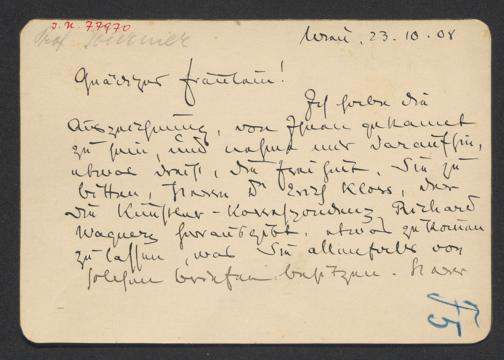 J.N. 77970
Prof.
Wien, 23.10.08
Gnädiges Fräulein!
Ich habe die
Auszeichnung, von Ihnen gekannt
zu sein, und nehme mir daraufhin,
etwas dreist, die Freiheit, Sie zu
bitten, Herrn Dr Erich Kloss, der
die Künstler-Korrespondenz Richard
Wagners herausgibt, etwas zukommen
zu lassen, was Sie allenfalls von
solchen Briefen besitzen. Herr